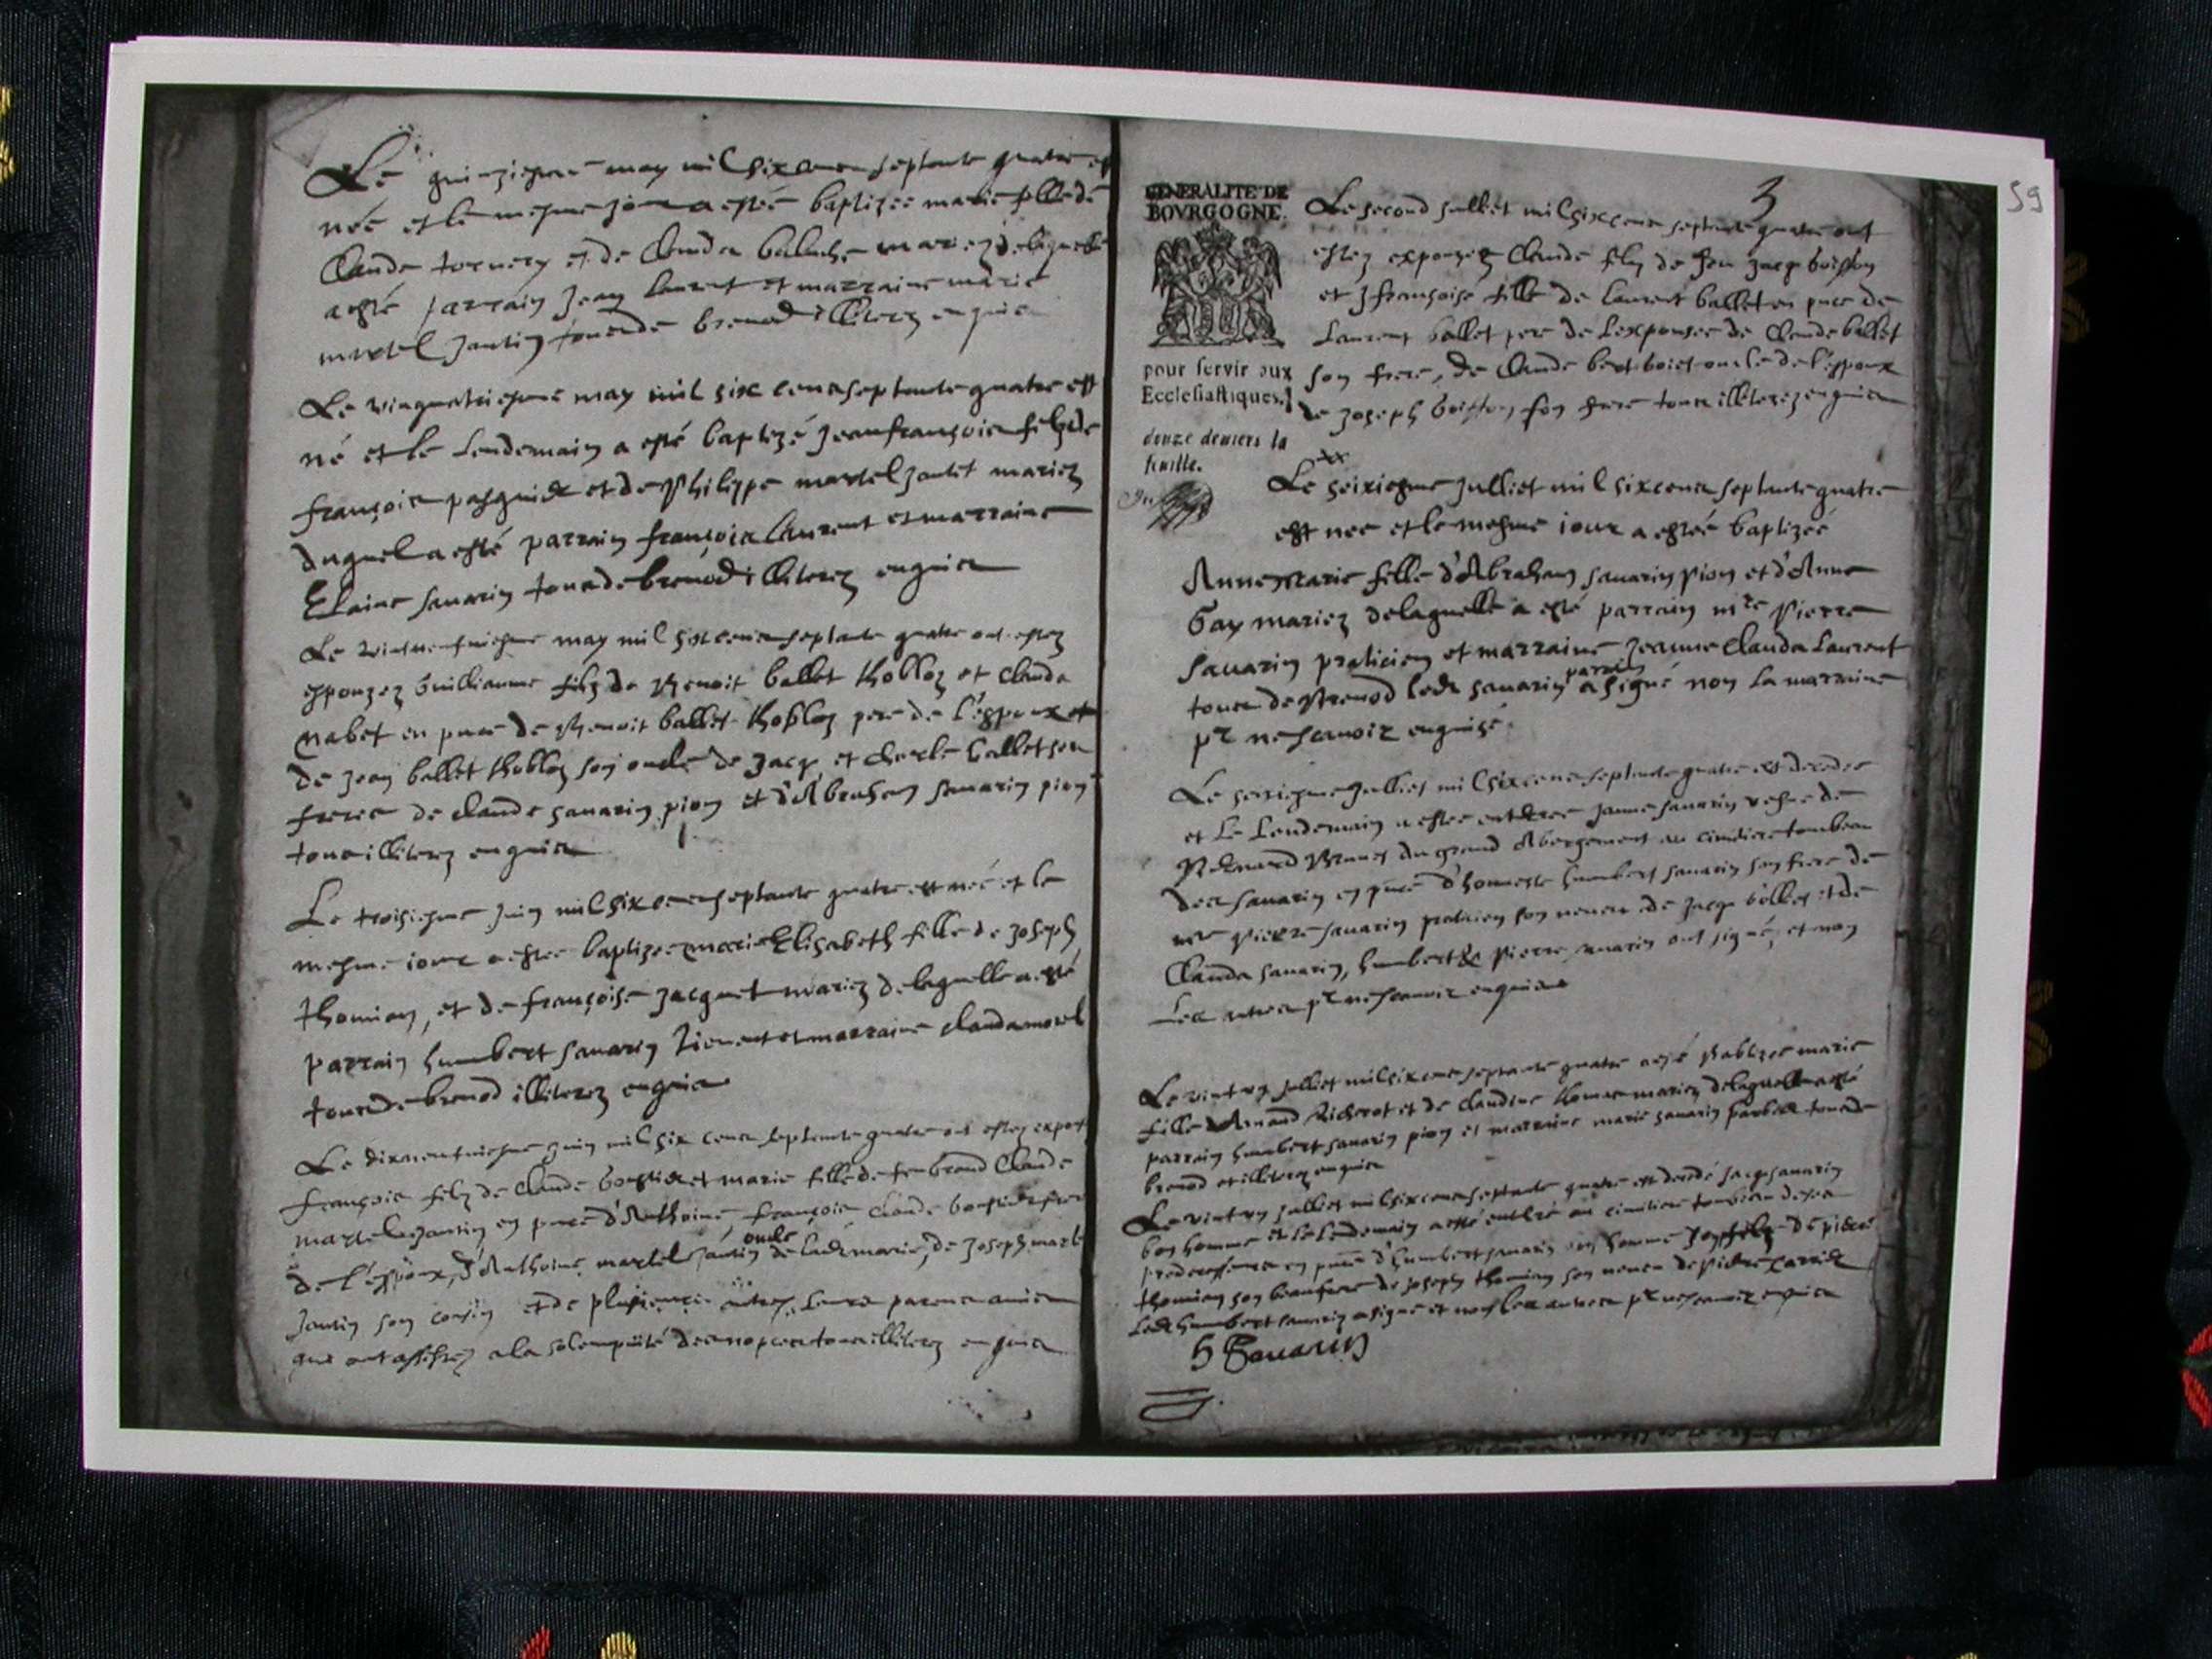 Le quinziesme may mil six cens septante quatre est
née et le mesme jour a estée baptizée marie fille de
Claude tornery et de Clauda baluche mariez de laquelle
a esté parrain Jean laurent et marraine marie
martel Jantin tous de brenod illiterez enquis
Le vinquatriesme may mil six cens septante quatre est
né et le lendemain a esté baptizé Jeanfrançois filz de
françois pasquier et de Philippe martel Jantet mariez
duquel a esté parrain françois laurent et marraine
Elaine savarin tous de brenod illiterez enquis
Le vintneufviesme may mil six cens septante quatre ont estez
espouzez Guilliaume filz de Benoit ballet et Clauda
Mabet en pnce de Benoit ballet pere de l'espoux et
de Jean ballet son oncle de Jacq et Charle ballet ses
freres de Claude savarin pion et d'Abraham savarin pion
tous illiterez enquis
Le troisiesme Juin mil six cens septante quatre est née et le
mesme iour a estée baptizée marie Elizabeth fille de Joseph
thomian, et de françoise Jacquet mariez de laquelle a esté
parrain humbert savarin et marraine Clauda morel
tous de brenod illiterez enquis
Le dixneufviesme Juin mil six cens septante quatre ont estez
françois filz de Claude et marie fille de feu Claude
martel Jantin en pnce d'Anthoine, françois Claude
oncle
de l'espoux, d'Anthoine martel Jantin de lade marie, de Joseph martel
Jantin son cousin et de plusieurs autres leurs parens amis
qui ont assistez a la solempnité des nopces tous illiterez enquis
3
59
GENERALITE DE
BOVRGOGNE.
pour servir aux
Ecclesiastiques.
douze deniers la
feuille.
Le second Julliet mil six cens septante quatre ont
estez espouzez Claude filz de feu Jacq boisson
et françoise fille de laurent ballet en pnce de
Laurent ballet pere de l'espousee de Claude ballet
son frere, de Claude oncle de l'espoux
de Joseph boisson son frere tous illiterez enquis
Le seiziesme Julliet mil six cens septante quatre
est née et le mesme iour a estée baptizée
Anne marie fille d'Abraham savarin pion et d'Anne
Gay mariez de laquelle a esté parrain mre Pierre
savarin praticien et marraine Jeanne Clauda Laurent
parrain
tous de Brenod led savarin a signé non la marraine
pr ne scavoir enquise
Le Julliet mil six cens septante quatre est decedee
et le lendemain a estee enterree Janne savarin vefve de
Bernard du grand Abergement au cimitiere tombeau
des savarin en pnce d'honneste humbert savarin son frere de
mre Pierre savarin praticien son neveu de Jacq ballet et de
Clauda savarin, humbert & Pierre savarin ont signé, et non
les autres pr ne scavoir enquis
Le vint Julliet mil six cens septante quatre a esté Babtizée marie
fille Armand et de Claudine mariez de laquelle a esté
parrain humbert savarin pion et marraine marie savarin tous de
brenod et illiterez enquis
Le vint Julliet mil six cens septante quatre est decedé Jacq savarin
bon homme et le lendemain a esté enterré au cimitiere tombeau de ses
predecesseurs en pnce d'humbert savarin bon homme son filz de pierre
thomian son beaufrere de Joseph thomian son neveu de Pierre
Led humbert savarin a signé et non les autres pr ne scavoir enquis
H Savarin